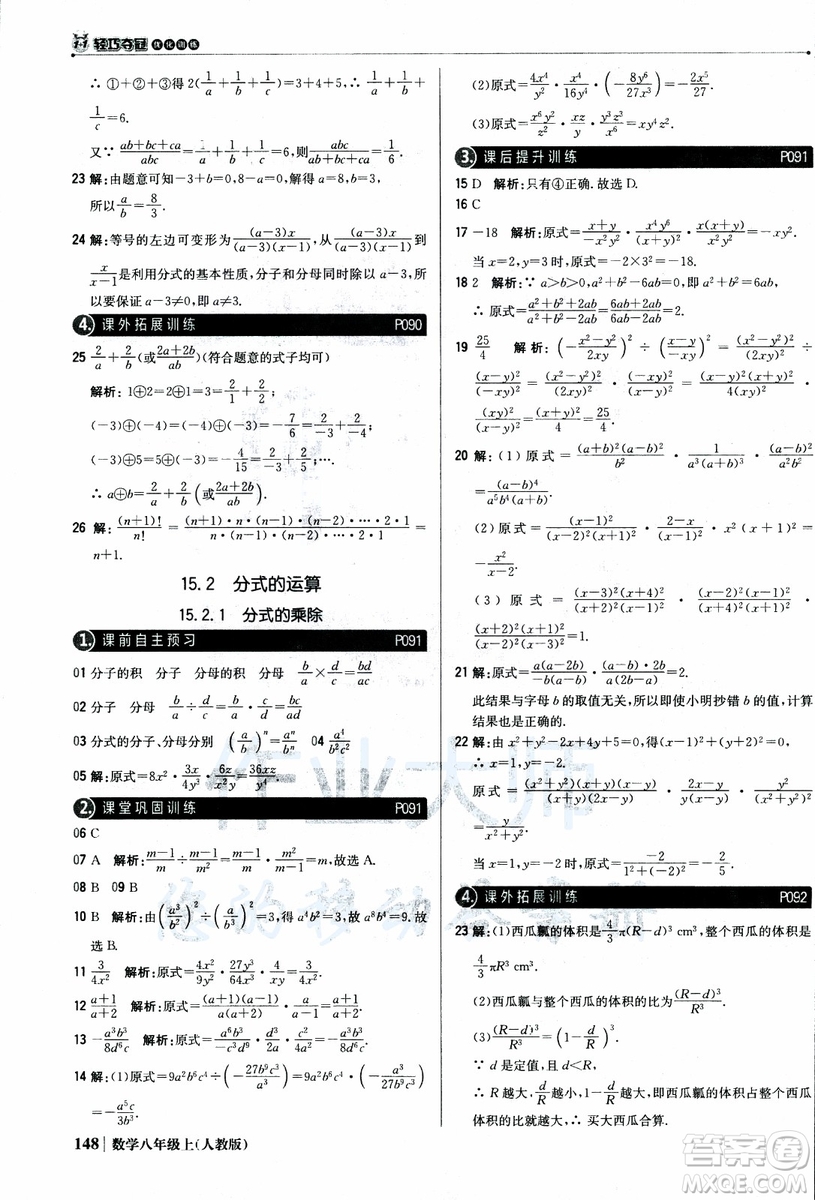 轻巧夺冠 优化训练
∴ ①+②+③得 2(1/a+1/b+1/c)=6,∴ 1/a+1/b+
1/c=6.
又∵ (ab+bc+ca)/abc=1/c+1/a+1/b=6,所以 abc/(ab+bc+ca)=1/6.
23 解:由题意可知-3+b=0,b=3;8-3a=0,a=8/3.
24 解:等号的左边可变形为 (a-3)x/((a-3)(x-1)),从 (a-3)x/((a-3)(x-1)) 到
x/(x-1) 是利用分式的基本性质,分子和分母同时除以 a-3,所
以要保证 a-3≠0,即 a≠3.
4. 课外拓展训练 P090
25 2/a+2/b(或(2a+2b)/ab)(符合题意的式子均可)
解析:1⊕2=2⊕1=3=2/1+2/2;
(-3)⊕(-4)=(-4)⊕(-3)=-7/6=2/-3+2/-4;
(-3)⊕5=5⊕(-3)=-4/15=2/-3+2/5;….
∴ a⊕b=2/a+2/b(或(2a+2b)/ab).
26 解:(n+1)!/n!=((n+1)·n·(n-1)·(n-2)·…·2·1)/(n·(n-1)·(n-2)·…·2·1)=
n+1.
15.2 分式的运算
15.2.1 分式的乘除
1. 课前自主预习 P091
01 分子的积 分子 分母的积 分母 a/b×d/c=bd/ac
02 分子 分母 b/a÷d/c=b/a·c/d=bc/ad
03 分式的分子、分母分别 (a/b)ⁿ=aⁿ/bⁿ 04 a⁴/b²c²
05 解:原式=8x²·3x/4y²·6z/x²=36xz/y².
2. 课堂巩固训练 P091
06 C
07 A 解析:(m-1)/m÷(m-1)/m²=(m-1)/m·m²/(m-1)=m,故选 A.
08 B 09 B
10 B 解析:∵ (a³/b²)²÷(a/b³)²=3,得 a⁴b²=3,故 a⁸b⁴=9. 故
选 B.
11 3/4x² 解析:原式=4x²/9y²·27y³/64x³·4/xy=3/4x².
12 (a+1)/(a+2) 解析:原式=(a+1)(a-1)/a(a+2)·a/(a-1)=(a+1)/(a+2).
13 -a³b³/8d⁶c 解析:原式=-a⁶b³/c³d⁹·d³/2a·c²/4a²=-a³b³/8d⁶c.
14 解:(1)原式=9a²b⁶c⁴÷(-27b⁹c³/a³)=9a²b⁶c⁴·(-a³/27b⁹c³)
=-a⁵c/3b³.
148 数学八年级上(人教版)
(2)原式=4x⁴/y²·x⁴/16y⁴·(-8y⁶/27x³)=-2x⁵/27.
(3)原式=x⁶y²/z²·xz/y·y³z³/x⁶=xy⁴z².
3. 课后提升训练 P091
15 D 解析:只有④正确.故选 D.
16 C
17 -18 解析:原式=(x+y)/(-x²y²)·x⁴y⁶/(x+y)²·x(x+y)/y²=-xy².
当 x=2,y=3 时,原式=-2×3²=-18.
18 2 解析:∵ a>b>0,a²+b²-6ab=0,即 a²+b²=6ab,
∴ 原式=(a²+b²+2ab)/(a²+b²-2ab)=(6ab+2ab)/(6ab-2ab)=2.
19 25/4 解析:(-(x²-y²)/2xy)²÷((x-y)/-xy)²=(x²-y²)²/(2xy)²÷
(x-y)²/(-xy)²=(x-y)²(x+y)²/(2xy)²·(-xy)²/(x-y)²=(x-y)²(x+y)²/4(xy)²·
(xy)²/(x-y)²=(x+y)²/4=25/4.
20 解:(1)原式=(a+b)²(a-b)²/b²·1/a³(a+b)³·(a-b)²/a²b²
=(a-b)⁴/a⁵b⁴(a+b).
(2)原式=(x-1)²/(x-2)²(x+1)²·(2-x)/(x-1)²·x²(x+1)²=
x²/(x-2).
(3)原式=(x-3)²(x+4)²/(x+2)²(x+1)²·(x-1)²(x+1)²/(x-3)²(x+4)²=
(x-1)²/(x+2)².
21 解:原式=a(a-2b)/-b(a-b)·(a-b)·2b/-a(a-2b)=2.
此结果与字母 b 的取值无关,所以即使小明抄错 b 的值,计算
结果也是正确的.
22 解:由 x²+y²-2x+4y+5=0,得(x-1)²+(y+2)²=0,
∴ x=1,y=-2.
原式=(x²+y²)(x+y)(x-y)/(x²+y²)²·xy/(x-y)·1/(x+y)=
xy/(x²+y²).
当 x=1,y=-2 时,原式=-2/(1²+(-2)²)=-2/5.
4. 课外拓展训练 P092
23 解:(1)西瓜瓤的体积是4/3π(R-d)³ cm³,整个西瓜的体积是
4/3πR³ cm³.
(2)西瓜瓤与整个西瓜的体积的比为(R-d)³/R³.
(3)(R-d)³/R³=(1-d/R)³.
∵ d 是定值,且 d<R,
∴ R 越大,d/R越小,1-d/R越大,即西瓜瓤的体积占整个西瓜
体积的比就越大,∴ 买大西瓜合算.